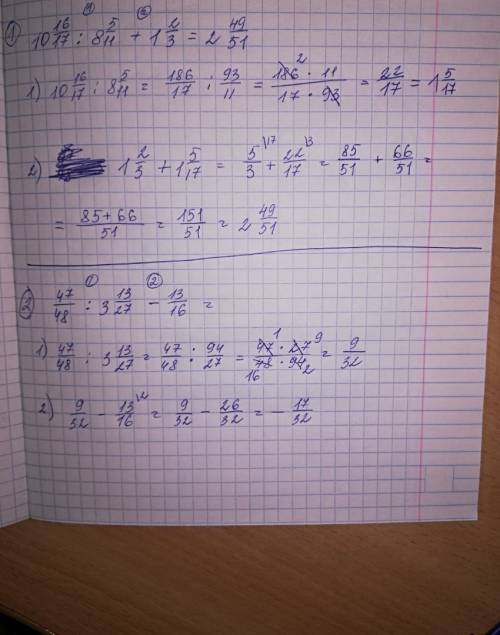 ① ②
① 10 16/17 : 8 5/11 + 1 2/3 = 2 49/51
1) 10 16/17 : 8 5/11 = 186/17 : 93/11 = 186 · 11 / 17 · 93 = 22/17 = 1 5/17
2) 1 2/3 + 1 5/17 = 5/3 \17 + 22/17 \3 = 85/51 + 66/51 =
= 85+66/51 = 151/51 = 2 49/51
① ②
② 47/48 : 3 13/27 − 13/16 =
1) 47/48 : 3 13/27 = 47/48 : 94/27 = 47 1 · 27 9 / 48 16 · 94 2 = 9/32
2) 9/32 − 13/16 \2 = 9/32 − 26/32 = − 17/32